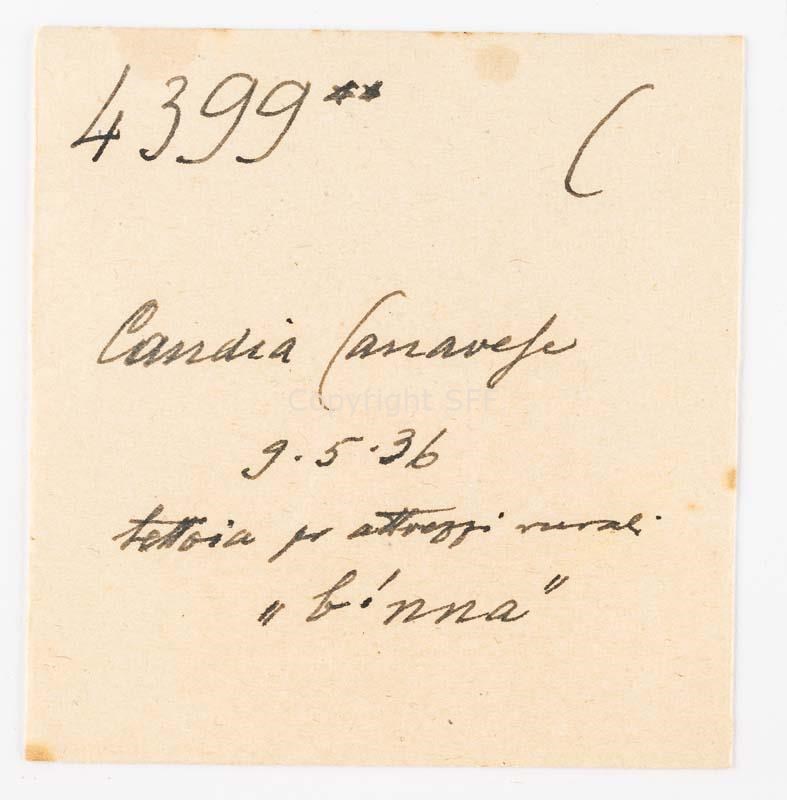 4399** (
Candia Canavese
Copyright SFF
9.5.36
tettoia pr attrezzi rurali
"bínna"